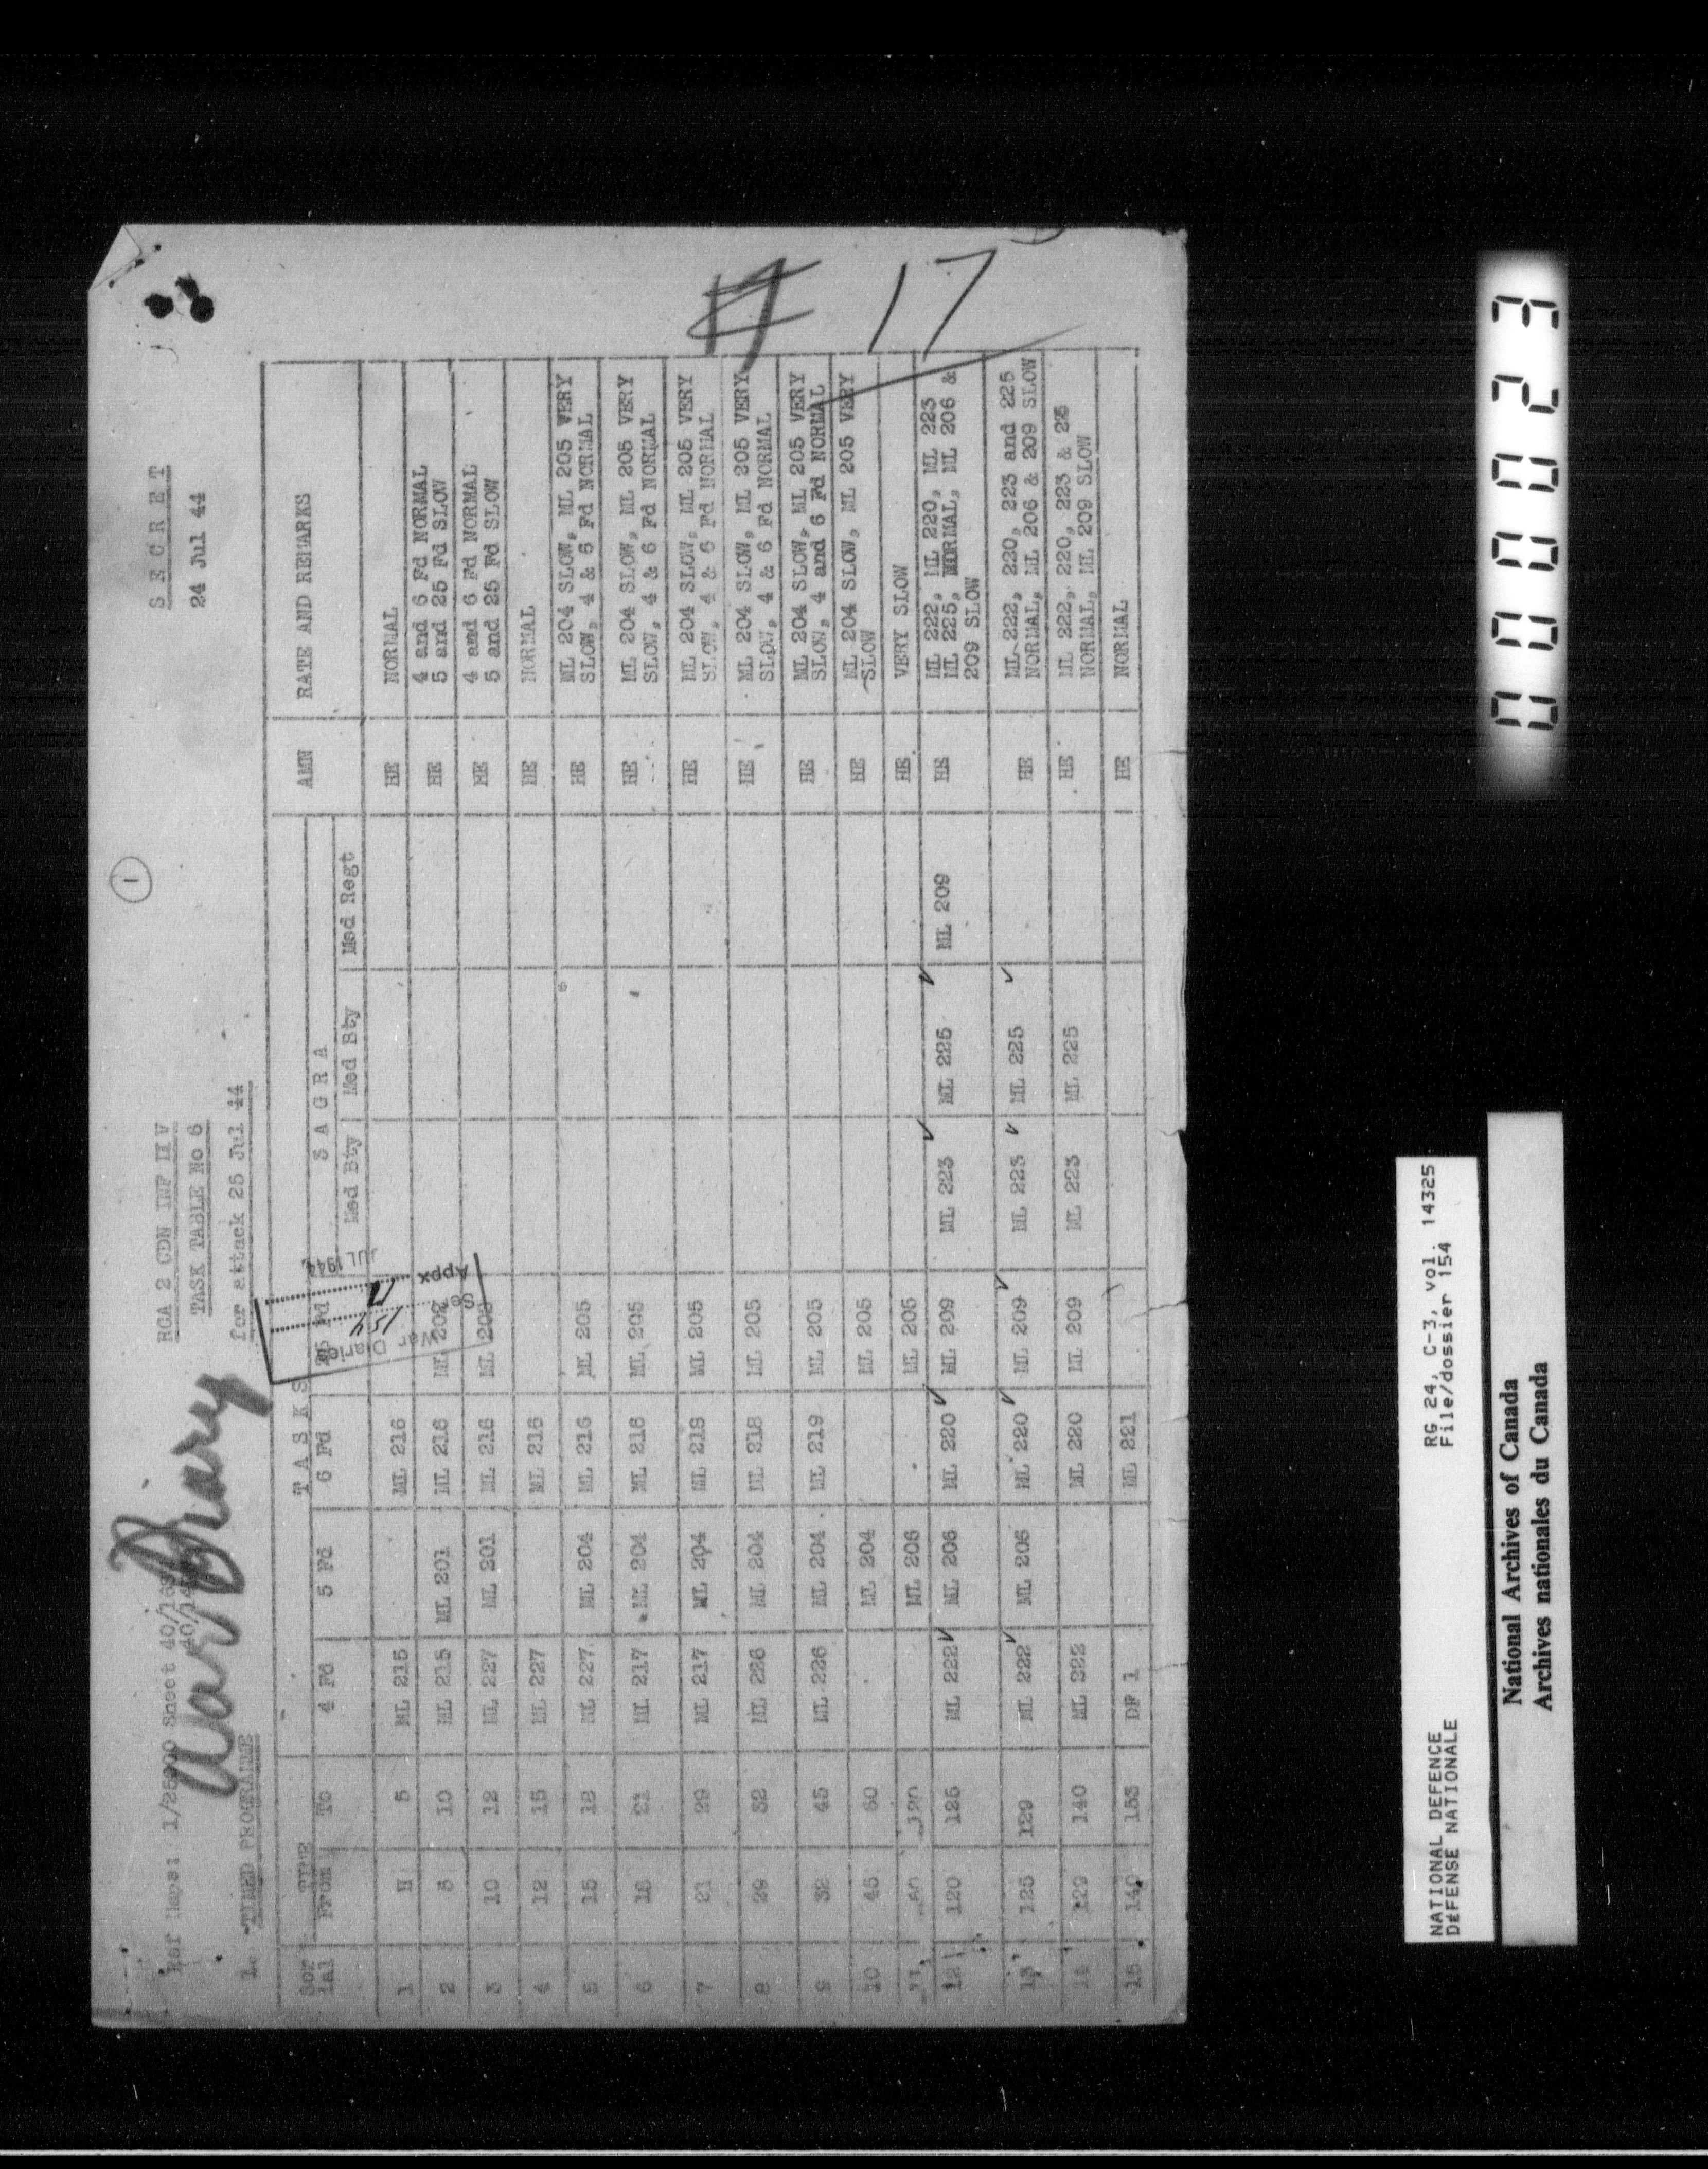 SECRET
24 Jul 44
1
RCA 2 CDN INF DIV
TASK TABLE No 6
for attack 25 Jul 44
Ref Maps: 1/25000 Sheet 40/16
War Diary
1. TIMED PROGRAMME
# 17
War Diarie
154
17
Appx
JUL 1944
TASKS
Ser ial | TIME From | To | 4 Fd | 5 Fd | 6 Fd | 25 Fd | 3 AGRA Med Bty | Med Bty | Med Regt | AMN | RATE AND REMARKS
1 H 5 ML 215 ML 216 HE NORMAL
2 5 10 ML 215 ML 201 ML 216 ML 202 HE 4 and 6 Fd NORMAL
5 and 25 Fd SLOW
3 10 12 ML 227 ML 201 ML 216 ML 202 HE 4 and 6 Fd NORMAL
5 and 25 Fd SLOW
4 12 15 ML 227 ML 216 HE NORMAL
5 15 18 ML 227 ML 204 ML 216 ML 205 HE ML 204 SLOW, ML 205 VERY
SLOW, 4 & 6 Fd NORMAL
6 18 21 ML 217 ML 204 ML 218 ML 205 HE ML 204 SLOW, ML 205 VERY
SLOW, 4 & 6 Fd NORMAL
7 21 29 ML 217 ML 204 ML 218 ML 205 HE ML 204 SLOW, ML 205 VERY
SLOW, 4 & 6 Fd NORMAL
8 29 32 ML 226 ML 204 ML 218 ML 205 HE ML 204 SLOW, ML 205 VERY
SLOW, 4 & 6 Fd NORMAL
9 32 45 ML 226 ML 204 ML 219 ML 205 HE ML 204 SLOW, ML 205 VERY
SLOW, 4 and 6 Fd NORMAL
10 45 60 ML 204 ML 205 HE ML 204 SLOW, ML 205 VERY
SLOW
11 60 120 ML 206 ML 205 HE VERY SLOW
12 120 125 ML 222 ML 206 ML 220 ML 209 ML 223 ML 225 ML 209 HE ML 222, ML 220, ML 223
ML 225, NORMAL, ML 206 &
209 SLOW
13 125 129 ML 222 ML 206 ML 220 ML 209 ML 223 ML 225 HE ML 222, 220, 223 and 225
NORMAL, ML 206 & 209 SLOW
14 129 140 ML 222 ML 220 ML 209 ML 223 ML 225 HE ML 222, 220, 223 & 25
NORMAL, ML 209 SLOW
15 140 153 DF 1 ML 221 HE NORMAL
000023
NATIONAL DEFENCE RG 24, C-3, vol. 14325
DÉFENSE NATIONALE File/dossier 154
National Archives of Canada
Archives nationales du Canada